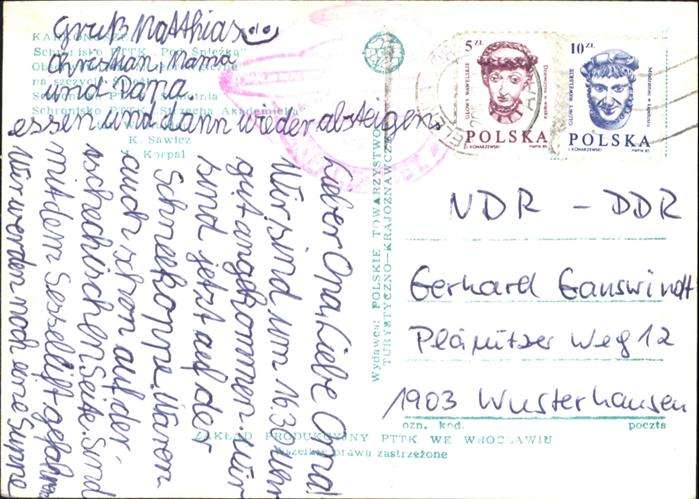 Lieber Opa, Liebe Oma!
Wir sind um 16.30 Uhr
gut angekommen. Wir
sind jetzt auf der
Schneekoppe. Waren
auch schon auf der
tschechischen Seite. Sind
mit dem Sessellift gefahren
Wir werden noch eine Suppe
essen und dann wieder absteigen.
Gruß Matthias
Christian, Mama
und Papa.
Schronisko PTTK „Pod Śnieżką"
K. Sawicz
Korpal
Wydawca: POLSKIE TOWARZYSTWO
TURYSTYCZNO-KRAJOZNAWCZE
5 ZŁ
POLSKA
10 ZŁ
POLSKA
NDR - DDR
Gerhard Ganswindt
Plänitzer Weg 12
1903 Wusterhausen
ozn. kod.
poczta
ZAKŁAD PRODUKCYJNY PTTK WE WROCŁAWIU
Wszelkie prawa zastrzeżone